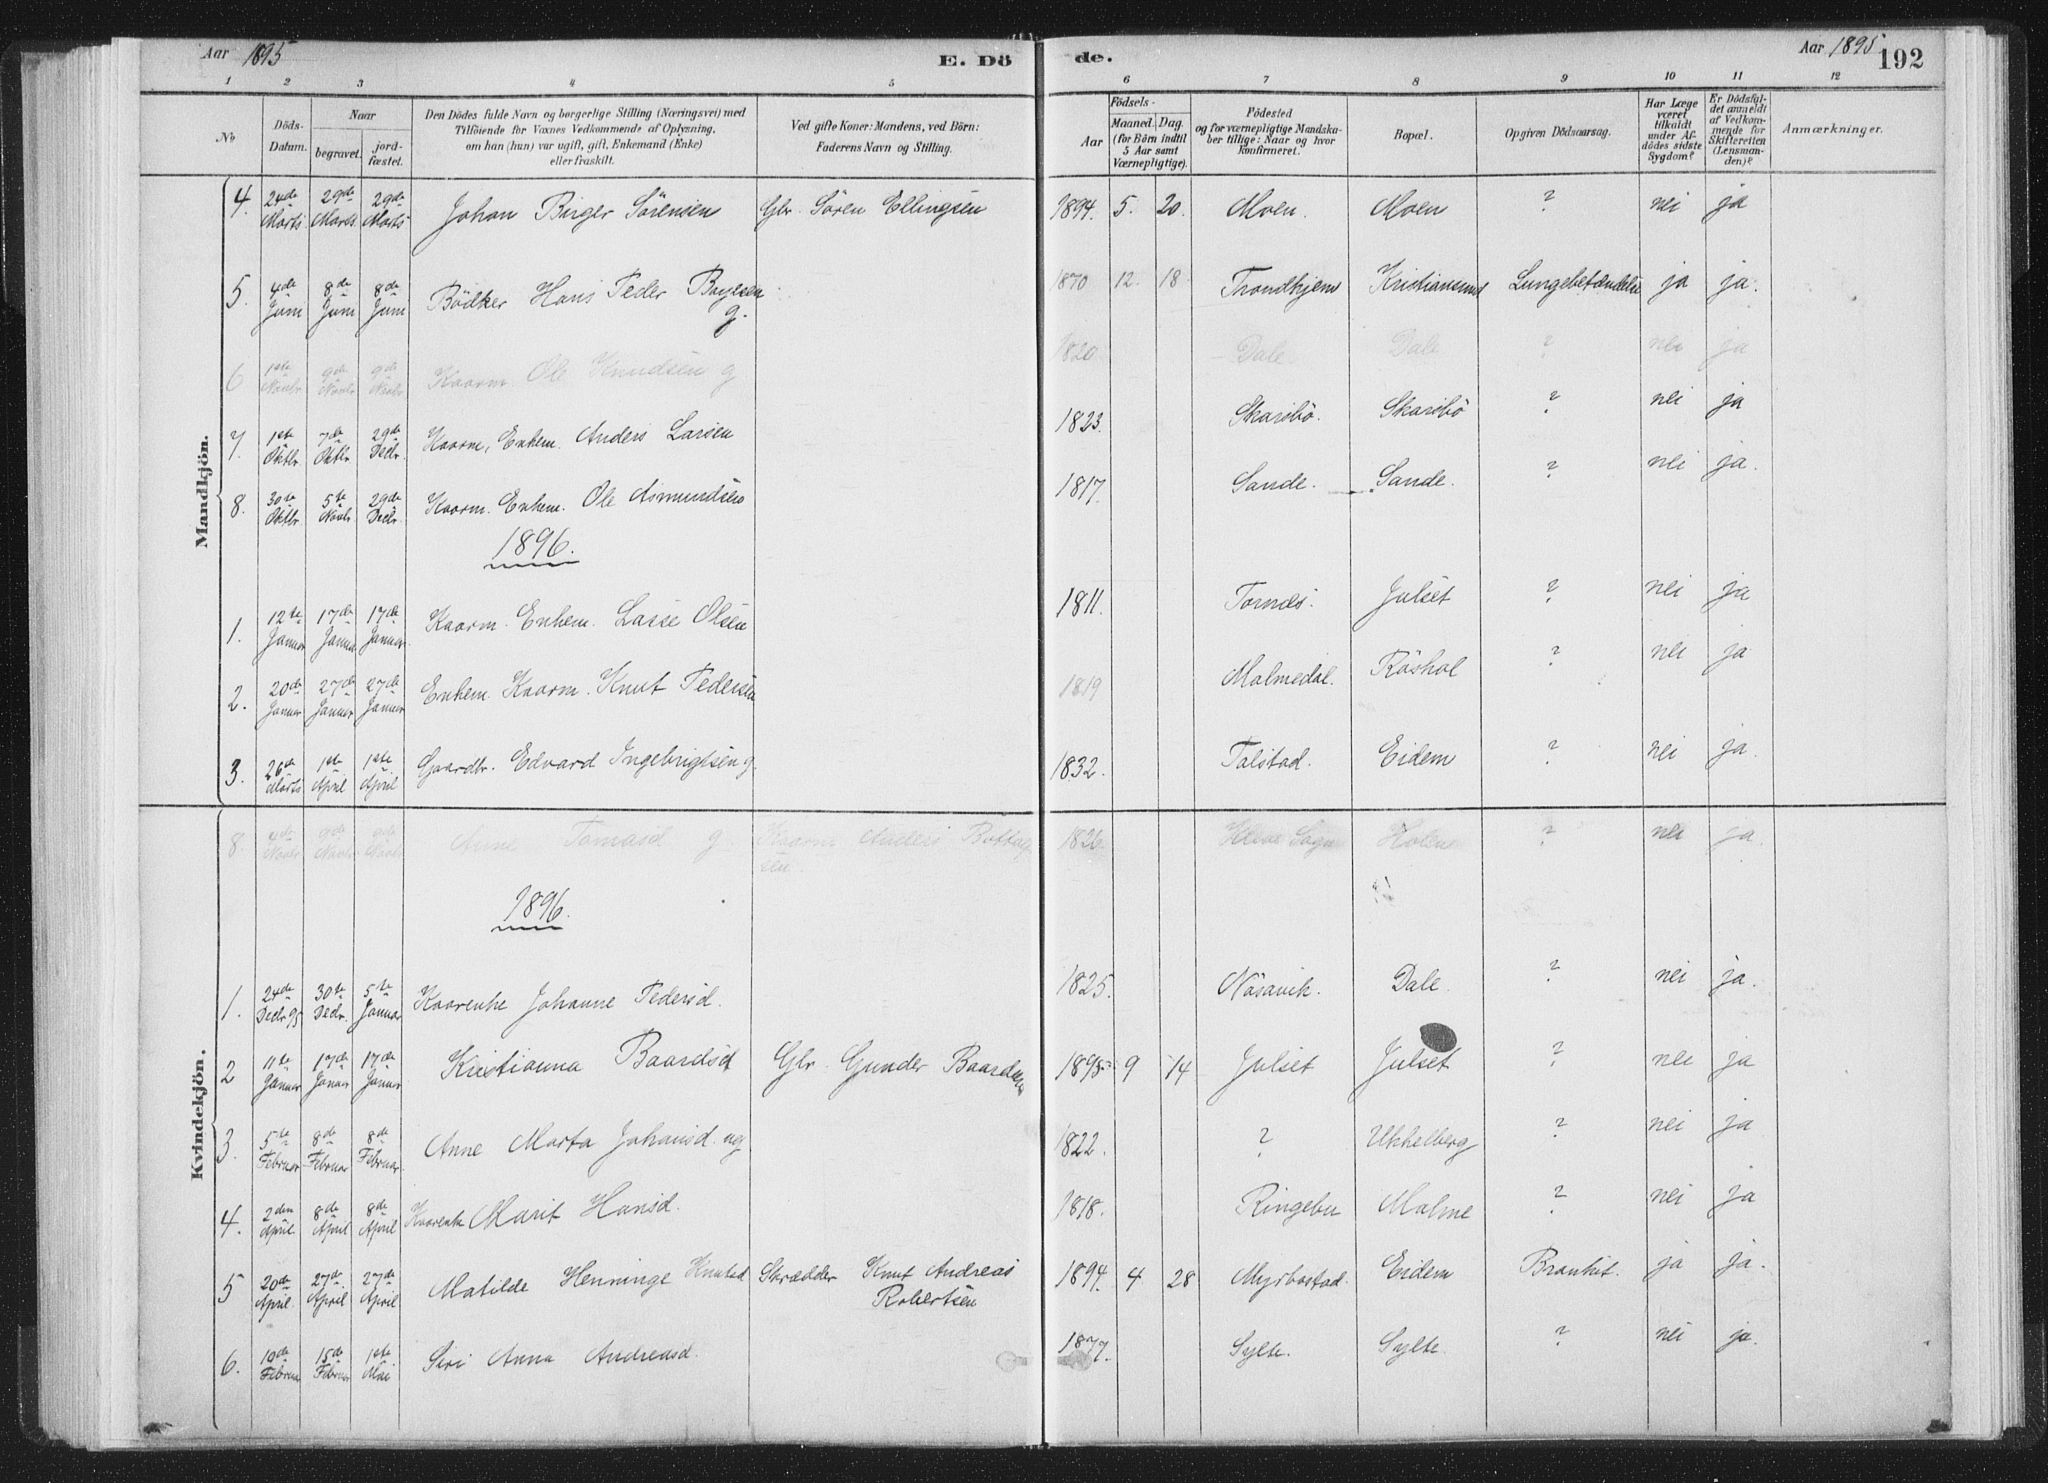 Aar 1895
E. Dö
de.
Aar 1895
192
1 2 3 4 5 6 7 8 9 10 11 12
No
Döds-Datum.
Naar
begravet.
jord-fæstet.
Den Dödes fulde Navn og borgerlige Stilling (Næringsvei) med
Tilföiende for Voxnes Vedkommende af Oplysning,
om han (hun) var ugift, gift, Enkemand (Enke)
eller fraskilt.
Ved gifte Koner: Mandens, ved Börn:
Faderens Navn og Stilling.
Födsels-
Aar
Maaned. Dag.
(for Börn indtil
5 Aar samt
Værnepligtige).
Födested
og for værnepligtige Mandska-
ber tillige: Naar og hvor
konfirmeret.
Bopæl.
Opgiven Dödsaarsag.
Har Læge
været
tilkaldt
under Af-
dödes sidste
Sygdom?
Er Dödsfal-
det anmeldt
af Vedkom-
mende for
Skifteretten
(Lensman-
den)?
Anmærkninger.
Mandkjön.
4. 24de Marts 29de Marts 29de Marts Johan Birger Sörensen Gbr. Sören Ellingsen 1894. 5. 20. Moen. Moen ? nei ja
5. 4de Juni 8de Juni 8de Juni Bödker Hans Peder Boyesen g. 1870 12. 18. Trondhjem Kristiansund Lungebetændelse ja ja.
6 1ste Novbr 9de Novbr 9de Novbr Kaarm Ole Knudsen g 1820 Dale Dale ? nei ja
7. 1ste Oktbr 7de Oktbr 29de Decbr. Kaarm, Enkem. Anders Larsen 1823. Skarsbö. Skarsbö ? nei ja
8. 30te Oktbr 5te Novbr 29de Decbr Kaarm. Enkem. Ole Asmundsen 1817. Sande. Sande. ? nei ja.
1896.
1. 12te Januar 17de Januar 17de Januar. Kaarm. Enkem. Lasse Olsen 1811. Tornes. Julset ? nei ja
2. 20de Januar 27de Januar 27de Januar Enkem. Kaarm. Knut Pedersen 1819 Malmedal. Röshol ? nei ja
3. 26de Marts 1ste April 1ste April Gaardbr. Edvard Ingebrigtsen g. 1832. Talstad. Eidem ? nei ja.
Kvindekjön.
8. Novbr Novbr Novbr Anne Tomasd g Kaarm Anders 1826. Sogn Holen ? nei ja.
1896.
1. 24de Decbr 95 30te Decbr. 5te Januar Kaarenke Johanne Pedersd. 1825. Näsavik. Dale. ? nei ja.
2 11te Januar 17de Januar 17de Januar Kristianna Baardsd Gbr. Gunder Baardsen 1895 9 14 Julset Julset ? nei ja
3. 5te Februar 8de Februar 8de Februar. Anne Marta Johansd. ug 1822. ? Ukkelberg ? nei ja
4. 2den April. 8de April 8de April Kaarenke Marit Hansd. 1818. Ringebu Malme ? nei ja
5 20de April. 27de April 27de April Matilde Henninge Knutsd Skrædder Knut Andreas
Robertsen 1894. 4 28 Myrbostad. Eidem Bronkit. ja ja.
6. 10de Februar 15de Februar 1ste Mai Siri Anna Andreasd. 1877. Sylte. Sylte. ? nei ja.